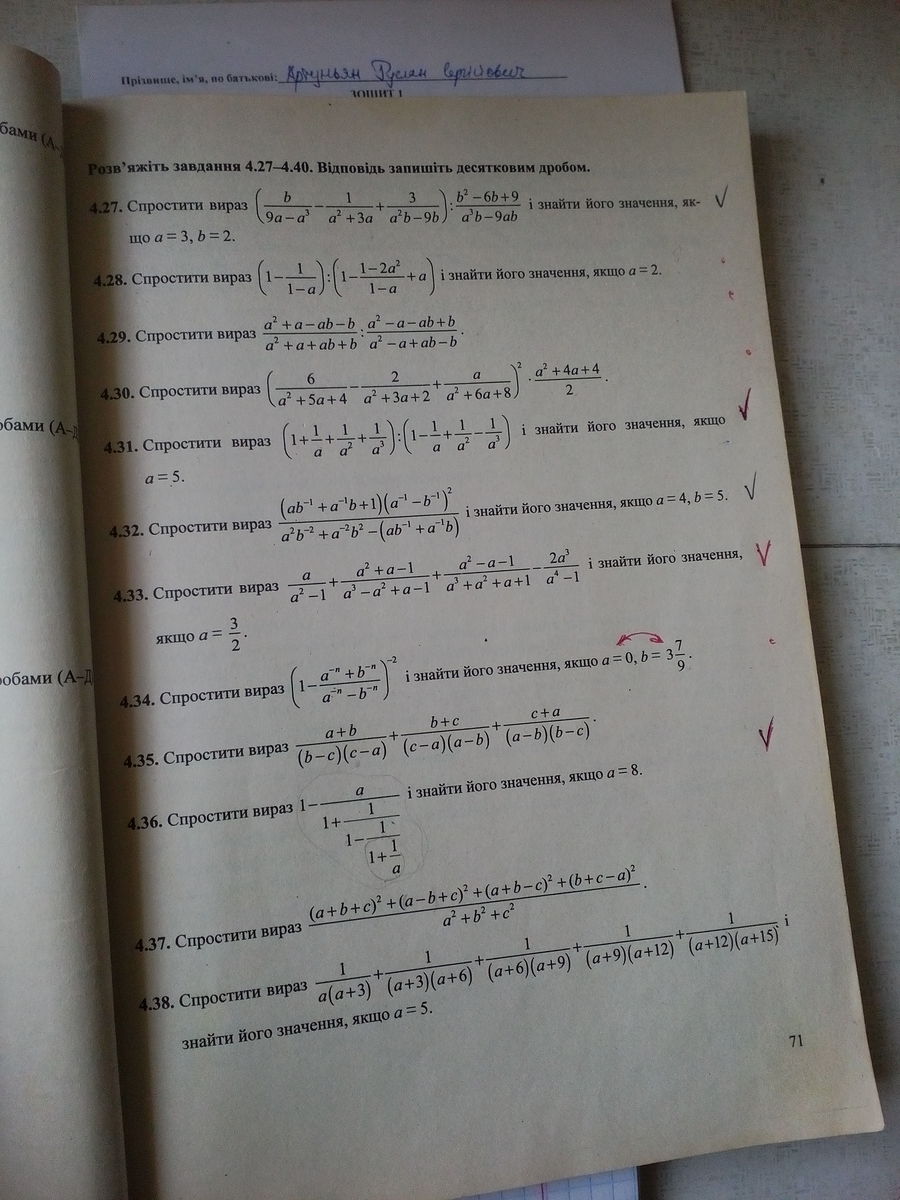 Прізвище, ім'я, по батькові: Руслан Сергійович
ЗОШИТ 1
бами (А–Д
обами (А–Д
робами (А–Д
Розв'яжіть завдання 4.27–4.40. Відповідь запишіть десятковим дробом.
4.27. Спростити вираз (b/(9a−a³) − 1/(a²+3a) + 3/(a²b−9b)) : (b²−6b+9)/(a³b−9ab) і знайти його значення, як-
що a = 3, b = 2.
4.28. Спростити вираз (1 − 1/(1−a)) : (1 − (1−2a²)/(1−a) + a) і знайти його значення, якщо a = 2.
4.29. Спростити вираз (a²+a−ab−b)/(a²+a+ab+b) : (a²−a−ab+b)/(a²−a+ab−b).
4.30. Спростити вираз (6/(a²+5a+4) − 2/(a²+3a+2) + a/(a²+6a+8))² · (a²+4a+4)/2.
4.31. Спростити вираз (1 + 1/a + 1/a² + 1/a³) : (1 − 1/a + 1/a² − 1/a³) і знайти його значення, якщо
a = 5.
4.32. Спростити вираз (ab⁻¹ + a⁻¹b + 1)(a⁻¹ − b⁻¹)² / (a²b⁻² + a⁻²b² − (ab⁻¹ + a⁻¹b)) і знайти його значення, якщо a = 4, b = 5.
4.33. Спростити вираз a/(a²−1) + (a²+a−1)/(a³−a²+a−1) + (a²−a−1)/(a³+a²+a+1) − 2a³/(a⁴−1) і знайти його значення,
якщо a = 3/2.
4.34. Спростити вираз (1 − (a⁻ⁿ + b⁻ⁿ)/(a⁻ⁿ − b⁻ⁿ))⁻² і знайти його значення, якщо a = 0, b = 3 7/9.
4.35. Спростити вираз (a+b)/((b−c)(c−a)) + (b+c)/((c−a)(a−b)) + (c+a)/((a−b)(b−c)).
4.36. Спростити вираз 1 − a/(1 + 1/(1 − 1/(1 + 1/a))) і знайти його значення, якщо a = 8.
4.37. Спростити вираз ((a+b+c)² + (a−b+c)² + (a+b−c)² + (b+c−a)²)/(a²+b²+c²).
4.38. Спростити вираз 1/(a(a+3)) + 1/((a+3)(a+6)) + 1/((a+6)(a+9)) + 1/((a+9)(a+12)) + 1/((a+12)(a+15)) і
знайти його значення, якщо a = 5.
71